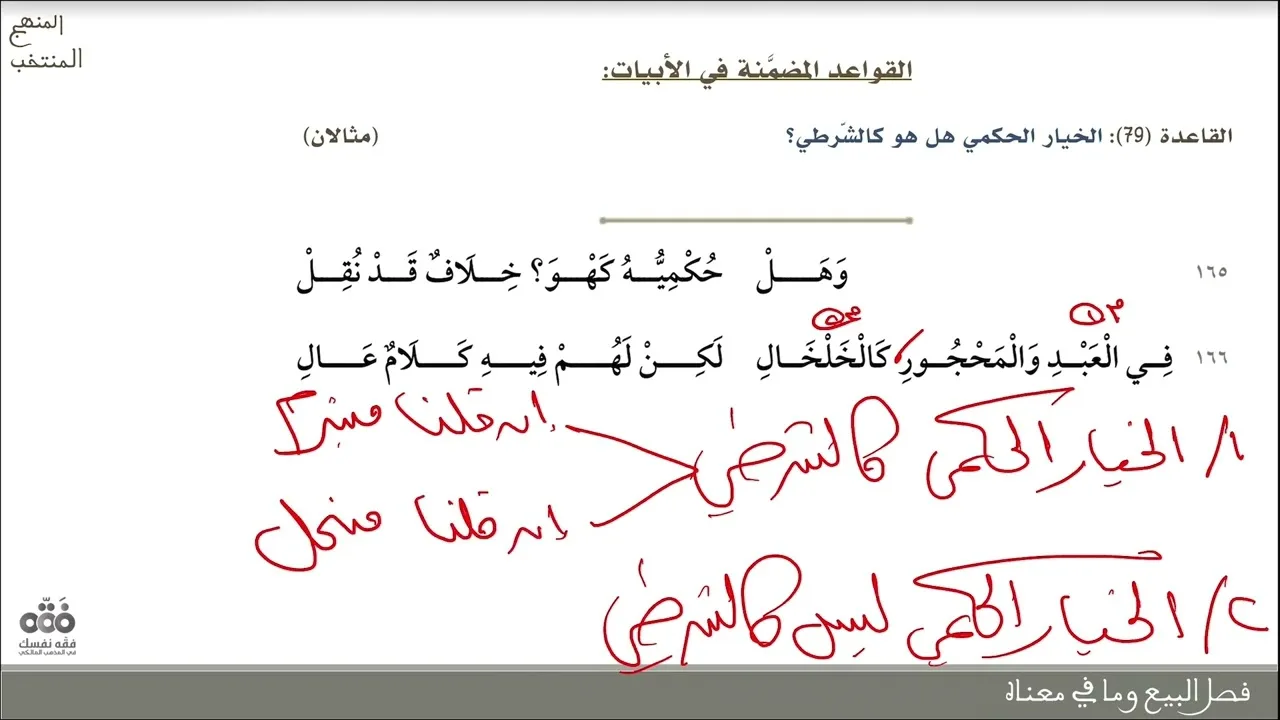 المنهج
المنتخب
القواعد المضمَّنة في الأبيات:
القاعدة (79): الخيار الحكمي هل هو كالشّرطي؟ (مثالان)
١٦٥ وَهَـــلْ حُكْمِيُّـــهُ كَهْـــوَ؟ خِـلَافٌ قَـدْ نُقِـلْ
١٦٦ فِـي الْعَبْـدِ وَالْمَحْجُـورِ كَالْخَلْخَـالِ لَكِـنْ لَهُـمْ فِيـهِ كَـلَامٌ عَـالِ
م١ م٢
١/ الخيار الحكمي كالشرطي
إن قلنا منبرم
إن قلنا منحل
٢/ الخيار الحكمي ليس كالشرطي
فقه نفسك
في المذهب المالكي
فصل البيع وما في معناه